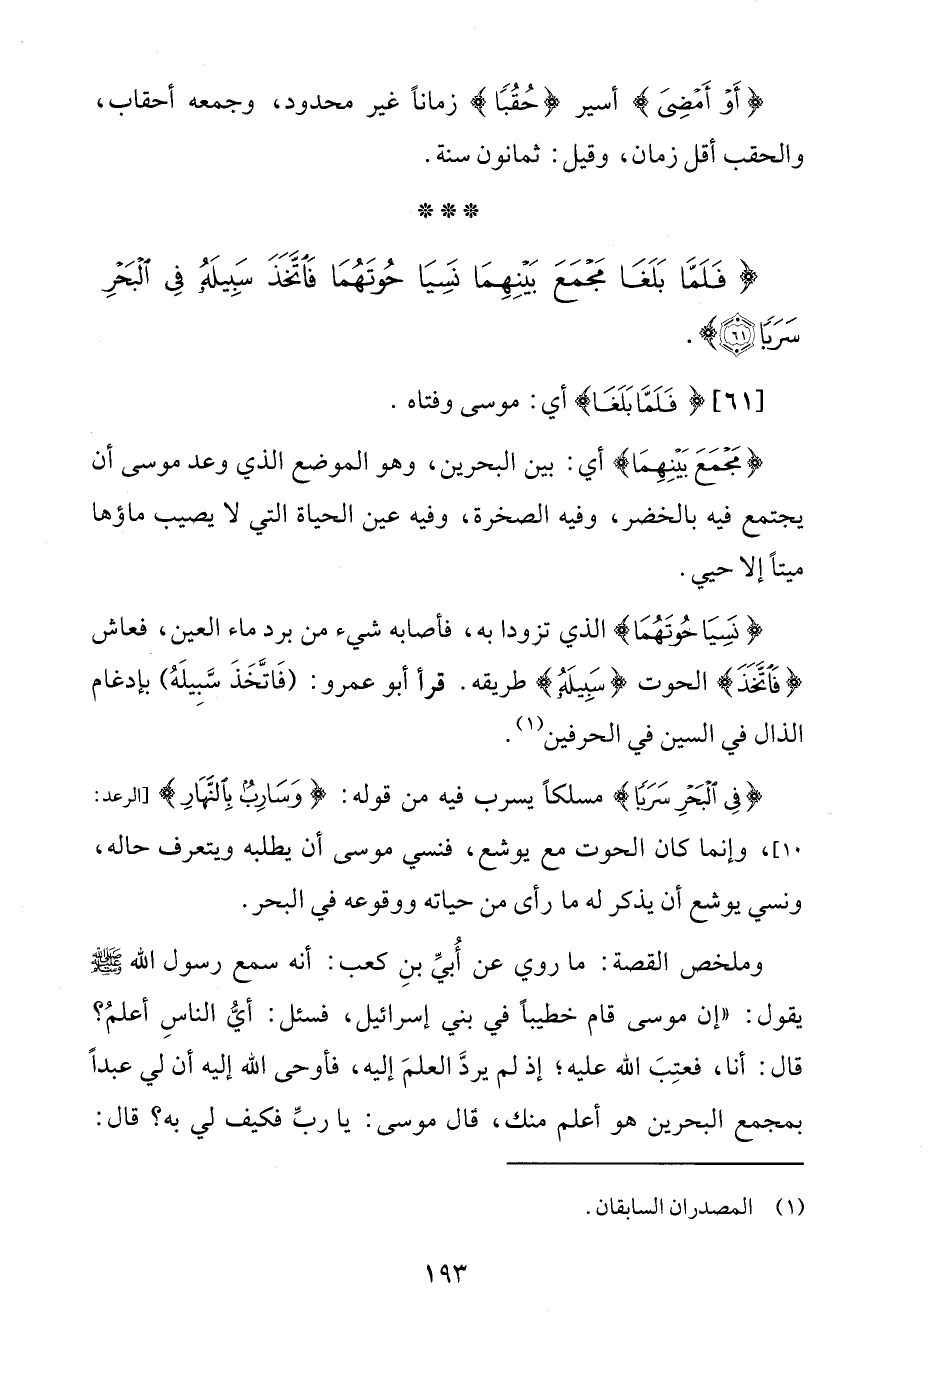 ﴿أَوْ أَمْضِيَ﴾ أسير ﴿حُقُبًا﴾ زماناً غير محدود، وجمعه أحقاب،
والحقب أقل زمان، وقيل: ثمانون سنة.
* * *
﴿فَلَمَّا بَلَغَا مَجْمَعَ بَيْنِهِمَا نَسِيَا حُوتَهُمَا فَٱتَّخَذَ سَبِيلَهُۥ فِى ٱلْبَحْرِ
سَرَبًا ۝٦١﴾.
[٦١] ﴿فَلَمَّا بَلَغَا﴾ أي: موسى وفتاه.
﴿مَجْمَعَ بَيْنِهِمَا﴾ أي: بين البحرين، وهو الموضع الذي وعد موسى أن
يجتمع فيه بالخضر، وفيه الصخرة، وفيه عين الحياة التي لا يصيب ماؤها
ميتاً إلا حيي.
﴿نَسِيَا حُوتَهُمَا﴾ الذي تزودا به، فأصابه شيء من برد ماء العين، فعاش
﴿فَٱتَّخَذَ﴾ الحوت ﴿سَبِيلَهُۥ﴾ طريقه. قرأ أبو عمرو: (فَاتَّخَذ سَّبِيلَهُ) بإدغام
الذال في السين في الحرفين(١).
﴿فِى ٱلْبَحْرِ سَرَبًا﴾ مسلكاً يسرب فيه من قوله: ﴿وَسَارِبٌۢ بِٱلنَّهَارِ﴾ [الرعد:
١٠]، وإنما كان الحوت مع يوشع، فنسي موسى أن يطلبه ويتعرف حاله،
ونسي يوشع أن يذكر له ما رأى من حياته ووقوعه في البحر.
وملخص القصة: ما روي عن أُبيِّ بنِ كعب: أنه سمع رسول الله ﷺ
يقول: «إن موسى قام خطيباً في بني إسرائيل، فسئل: أيُّ الناسِ أعلمُ؟
قال: أنا، فعتِبَ الله عليه؛ إذ لم يردَّ العلمَ إليه، فأوحى الله إليه أن لي عبداً
بمجمع البحرين هو أعلم منك، قال موسى: يا ربِّ فكيف لي به؟ قال:
(١) المصدران السابقان.
١٩٣